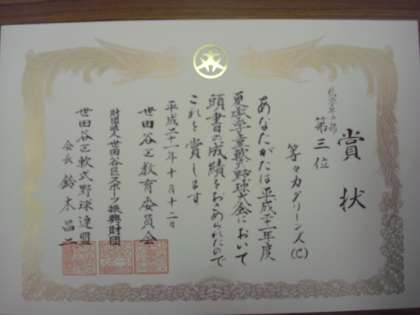 賞状
第三位
等々力グリーンズ(C)
あなたがたは平成二十一年度
夏季学童軟式野球大会において
頭書の成績をおさめられたので
これを賞します
平成二十一年十月十二日
世田谷区教育委員会
財団法人世田谷区スポーツ振興財団
世田谷区軟式野球連盟
会長 鈴木昌二